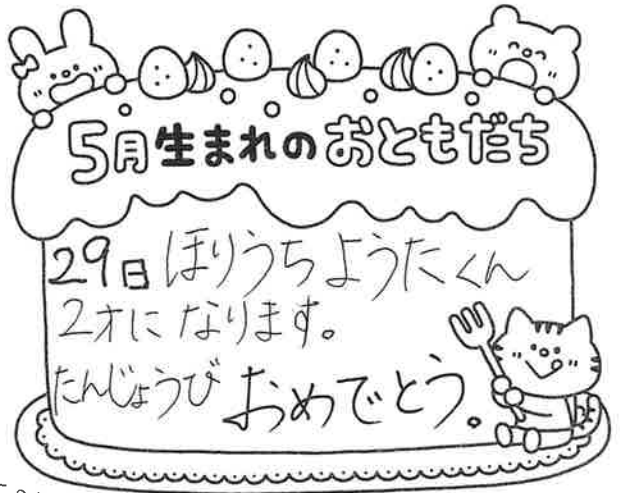 5月生まれのおともだち
29日 ほりうち ようたくん
2才に なります。
たんじょうび おめでとう。